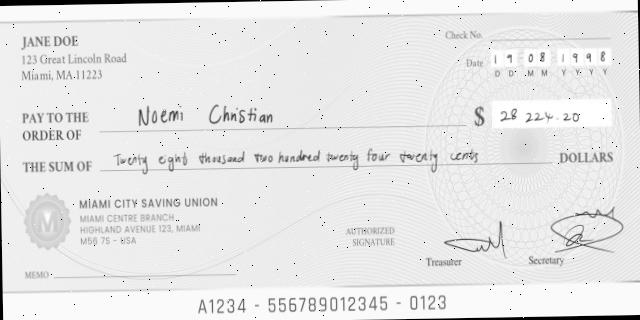 JANE DOE
123 Great Lincoln Road
Miami, MA.11223
Check No.
Date 19 08 1998
D D M M Y Y Y Y
PAY TO THE ORDER OF Noemi Christian $ 28 224.20
THE SUM OF Twenty eight thousand two hundred twenty four twenty cents DOLLARS
MIAMI CITY SAVING UNION
MIAMI CENTRE BRANCH
HIGHLAND AVENUE 123, MIAMI
M56 7S - USA
M
AUTHORIZED
SIGNATURE
Treasurer
Secretary
MEMO
A1234 - 556789012345 - 0123